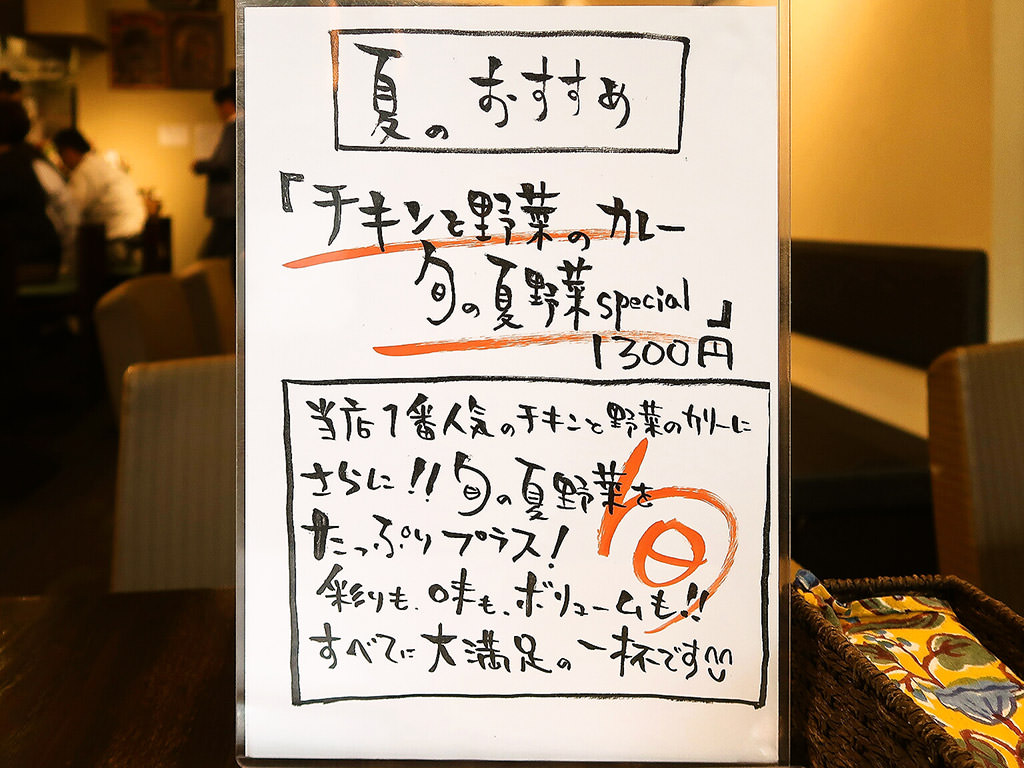 夏のおすすめ
『チキンと野菜のカレー
旬の夏野菜special』
1300円
当店1番人気のチキンと野菜のカリーに
さらに!!旬の夏野菜を
たっぷりプラス!
彩りも、味も、ボリュームも!!
すべてに大満足の一杯です
旬